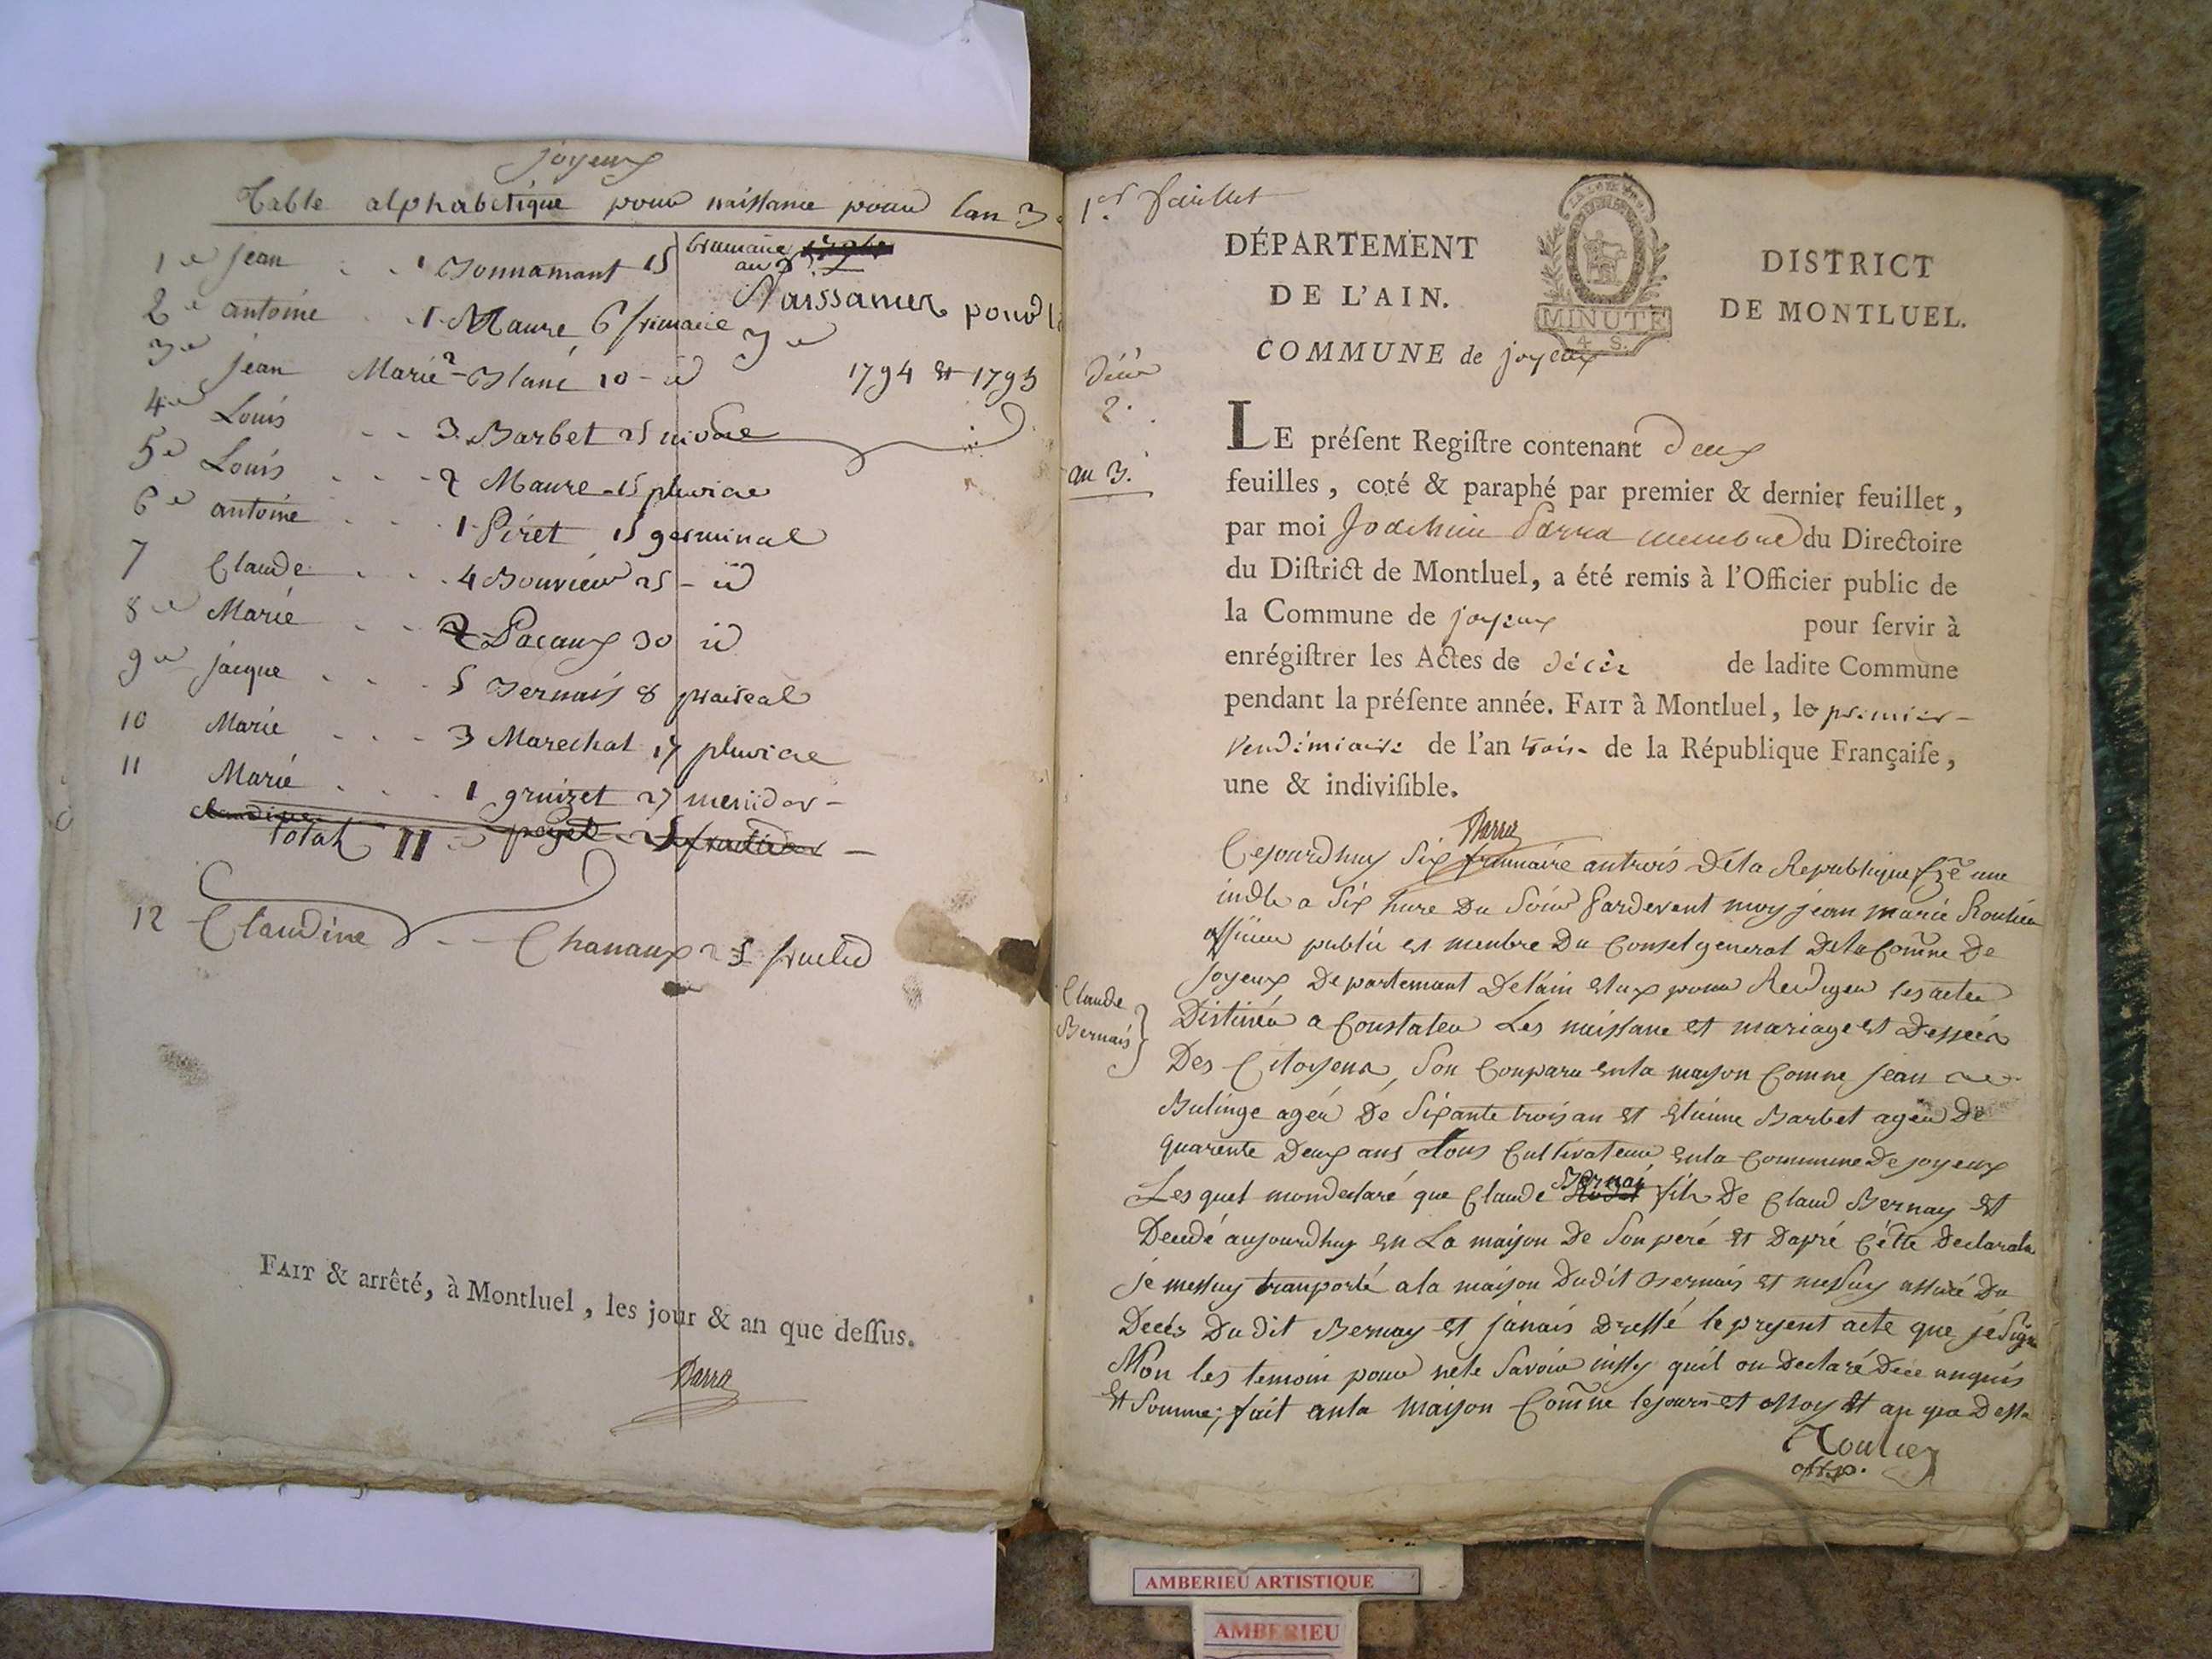 joyeux
Table alphabetique pour naissance pour lan 3
1er jean 1 Bonnamant 15 brumaire an 3
2e antoine 1 Maure 6 frimaire
Naissances pour l
3e
3e jean Marie 2 Blanc 10 - id
1794 et 1795
4e Louis 3 Barbet 25 nivose
5e Louis 2 Maure 15 pluviose
6e antoine 1 Piret 15 germinal
7 Claude 4 Bouvier 25 - id
8e Marie 2 Pacaux 30 id
9e jacque 5 Bernais 8 prairéal
10 Marie 3 Marechal 17 pluviose
11 Marie 1 gruizet 27 mesidor -
total 11
12 Claudine Chanaux 25 fructid
FAIT & arrêté, à Montluel, les jour & an que deſſus.
Parra
1er feuillet
DÉPARTEMENT
DE L'AIN.
MINUTE
4 S.
DISTRICT
DE MONTLUEL.
COMMUNE de joyeux
décès
2.
an 3.
LE préſent Regiſtre contenant deux
feuilles, coté & paraphé par premier & dernier feuillet,
par moi Joachim Parra membre du Directoire
du Diſtrict de Montluel, a été remis à l'Officier public de
la Commune de joyeux pour ſervir à
enrégiſtrer les Actes de décès de ladite Commune
pendant la préſente année. FAIT à Montluel, le premier
vendémiaire de l'an trois de la République Françaiſe,
une & indiviſible.
Parra
Cejourdhuy Six frimaire antrois Déla Republique fçe une
indle a Six hure Du Soir Pardevent moy jean marie Roulier
officier public et menbre Du Consel general Dela Comne De
joyeux Departemant Delain elus pour Rediger les actes
Claude
Bernais
Distiné a Constater Les naissance et mariage et Desseés
Des Citoyens, Son Conparu enla mayson Comne jean
Bulinge agéé De Sixante trois an et etienne Barbet agéé De
quarente Deux ans tous Cultivateur enla Commune De joyeux
Les quel mondeclaré que Claude Bernai fils De Claud Bernay est
Décédé aujourdhuy en La maison De Son péré et Dapré Cétte Declaration
je messuy tranporté a la maison Dudit Bernais et messuy assuré Du
Decés Du dit Bernay et janais Dressé le presént acte que jé Signe
Non les temoin pour nele Savoir inssy quil on Declaré Dece anquis
Et Somme; fait anla maison Comne lejours et Moy et an que Dessu
Roulier
off. p.
AMBERIEU ARTISTIQUE
AMBERIEU